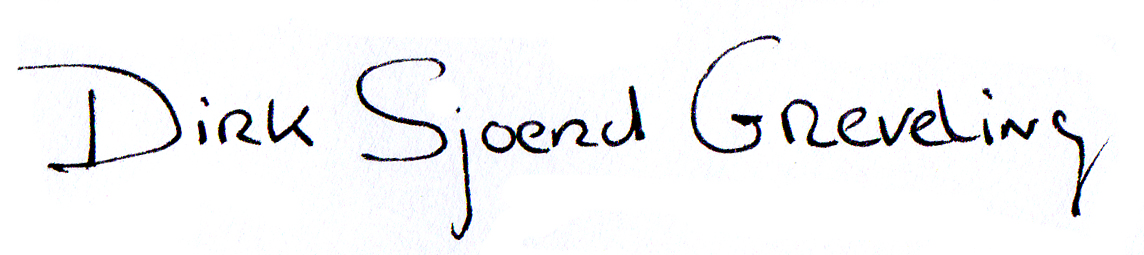 Dirk Sjoerd Greveling